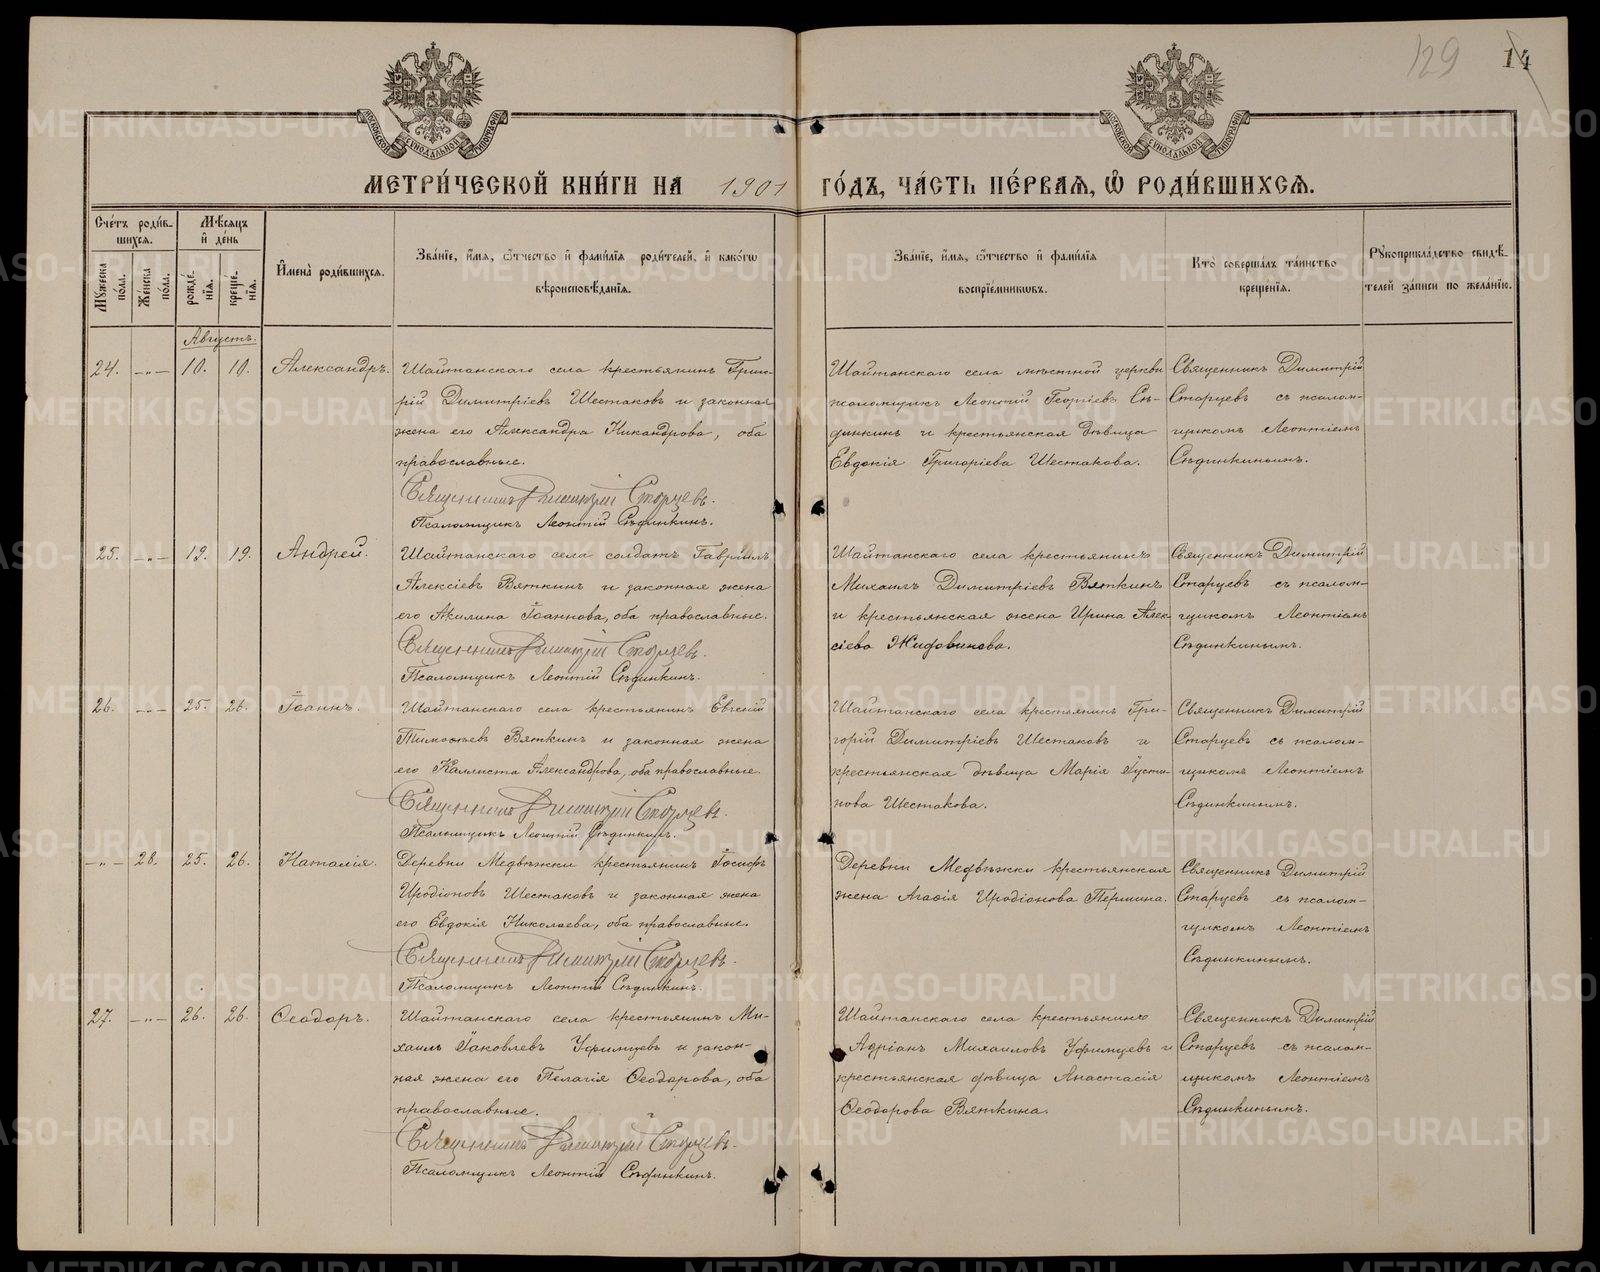 129
14
МОСКОВСКОЙ СѴНОДАЛЬНОЙ ТИПОГРАФІИ
МОСКОВСКОЙ СѴНОДАЛЬНОЙ ТИПОГРАФІИ
МЕТРИ́ЧЕСКОЙ КНИ́ГИ НА 1901 ГО́ДЪ, ЧА́СТЬ ПЕ́РВАѦ, Ѿ РОДИ́ВШИХСѦ.
Сче́тъ роди́в-
шихсѧ.
Мꙋ́жеска по́ла.
Же́нска по́ла.
Мѣ́сѧцъ
и҆ де́нь
рожде́-
нїѧ.
креще́-
нїѧ.
И҆мена̀ роди́вшихсѧ.
Зва́нїе, и҆́мѧ, ѻ҆́тчество и҆ фами́лїѧ роди́телей, и҆ како́гѡ
вѣроисповѣ́данїѧ.
Зва́нїе, и҆́мѧ, ѻ҆́тчество и҆ фами́лїѧ
воспрїе́мникѡвъ.
Кто̀ соверша́лъ та́инство
креще́нїѧ.
Рꙋкоприкла́дство свидѣ́-
телей за́писи по жела́нїю.
Августъ.
24. —„— 10. 10. Александръ.
Шайтанскаго села крестьянинъ Григо-
рій Димитріевъ Шестаковъ и законная
жена его Александра Никандрова, оба
православные.
Священникъ Димитрій Старцевъ.
Псаломщикъ Леонтій Сѣдинкинъ.
Шайтанскаго села мѣстной церкви
псаломщикъ Леонтій Георгіевъ Сѣ-
динкинъ и крестьянская дѣвица
Евдокія Григоріева Шестакова.
Священникъ Димитрій
Старцевъ съ псалом-
щикомъ Леонтіемъ
Сѣдинкинымъ.
25. —„— 19. 19. Андрей.
Шайтанскаго села солдатъ Гавріилъ
Алексіевъ Вяткинъ и законная жена
его Акилина Іоаннова, оба православные.
Священникъ Димитрій Старцевъ.
Псаломщикъ Леонтій Сѣдинкинъ.
Шайтанскаго села крестьянинъ
Михаилъ Димитріевъ Вяткинъ
и крестьянская жена Ирина Алек-
сіева Жидовинова.
Священникъ Димитрій
Старцевъ съ псалом-
щикомъ Леонтіемъ
Сѣдинкинымъ.
26. —„— 25. 26. Іоаннъ.
Шайтанскаго села крестьянинъ Евгеній
Тимоѳеевъ Вяткинъ и законная жена
его Каллиста Александрова, оба православные.
Священникъ Димитрій Старцевъ.
Псаломщикъ Леонтій Сѣдинкинъ.
Шайтанскаго села крестьянинъ Гри-
горій Димитріевъ Шестаковъ и
крестьянская дѣвица Марія Іусти-
нова Шестакова.
Священникъ Димитрій
Старцевъ съ псалом-
щикомъ Леонтіемъ
Сѣдинкинымъ.
—„— 28. 25. 26. Наталія.
Деревни Медвѣжки крестьянинъ Іосифъ
Иродіоновъ Шестаковъ и законная жена
его Евдокія Николаева, оба православные.
Священникъ Димитрій Старцевъ.
Псаломщикъ Леонтій Сѣдинкинъ.
Деревни Медвѣжки крестьянская
жена Агаѳія Иродіонова Першина.
Священникъ Димитрій
Старцевъ съ псалом-
щикомъ Леонтіемъ
Сѣдинкинымъ.
27. —„— 26. 26. Ѳеодоръ.
Шайтанскаго села крестьянинъ Ми-
хаилъ Іаковлевъ Уфимцевъ и закон-
ная жена его Пелагія Ѳеодорова, оба
православные.
Священникъ Димитрій Старцевъ.
Псаломщикъ Леонтій Сѣдинкинъ.
Шайтанскаго села крестьянинъ
Адріанъ Михаиловъ Уфимцевъ и
крестьянская дѣвица Анастасія
Ѳеодорова Вяткина.
Священникъ Димитрій
Старцевъ съ псалом-
щикомъ Леонтіемъ
Сѣдинкинымъ.
METRIKI.GASO-URAL.RU